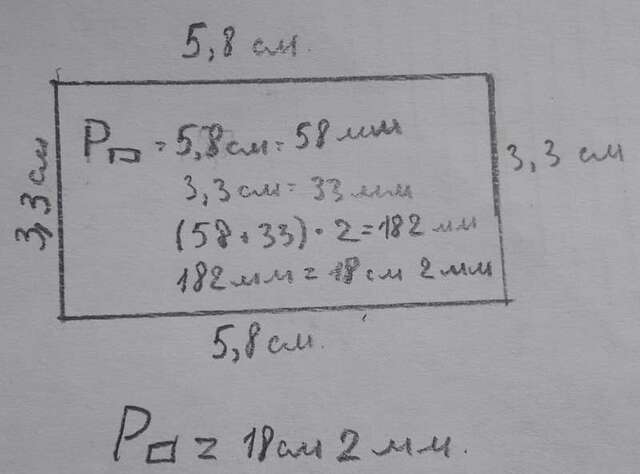 5,8 см.
3,3 см
P▭ = 5,8 см = 58 мм
3,3 см = 33 мм
(58+33)·2=182 мм
182 мм = 18 см 2 мм
3,3 см
5,8 см.
P▭ = 18 см 2 мм.